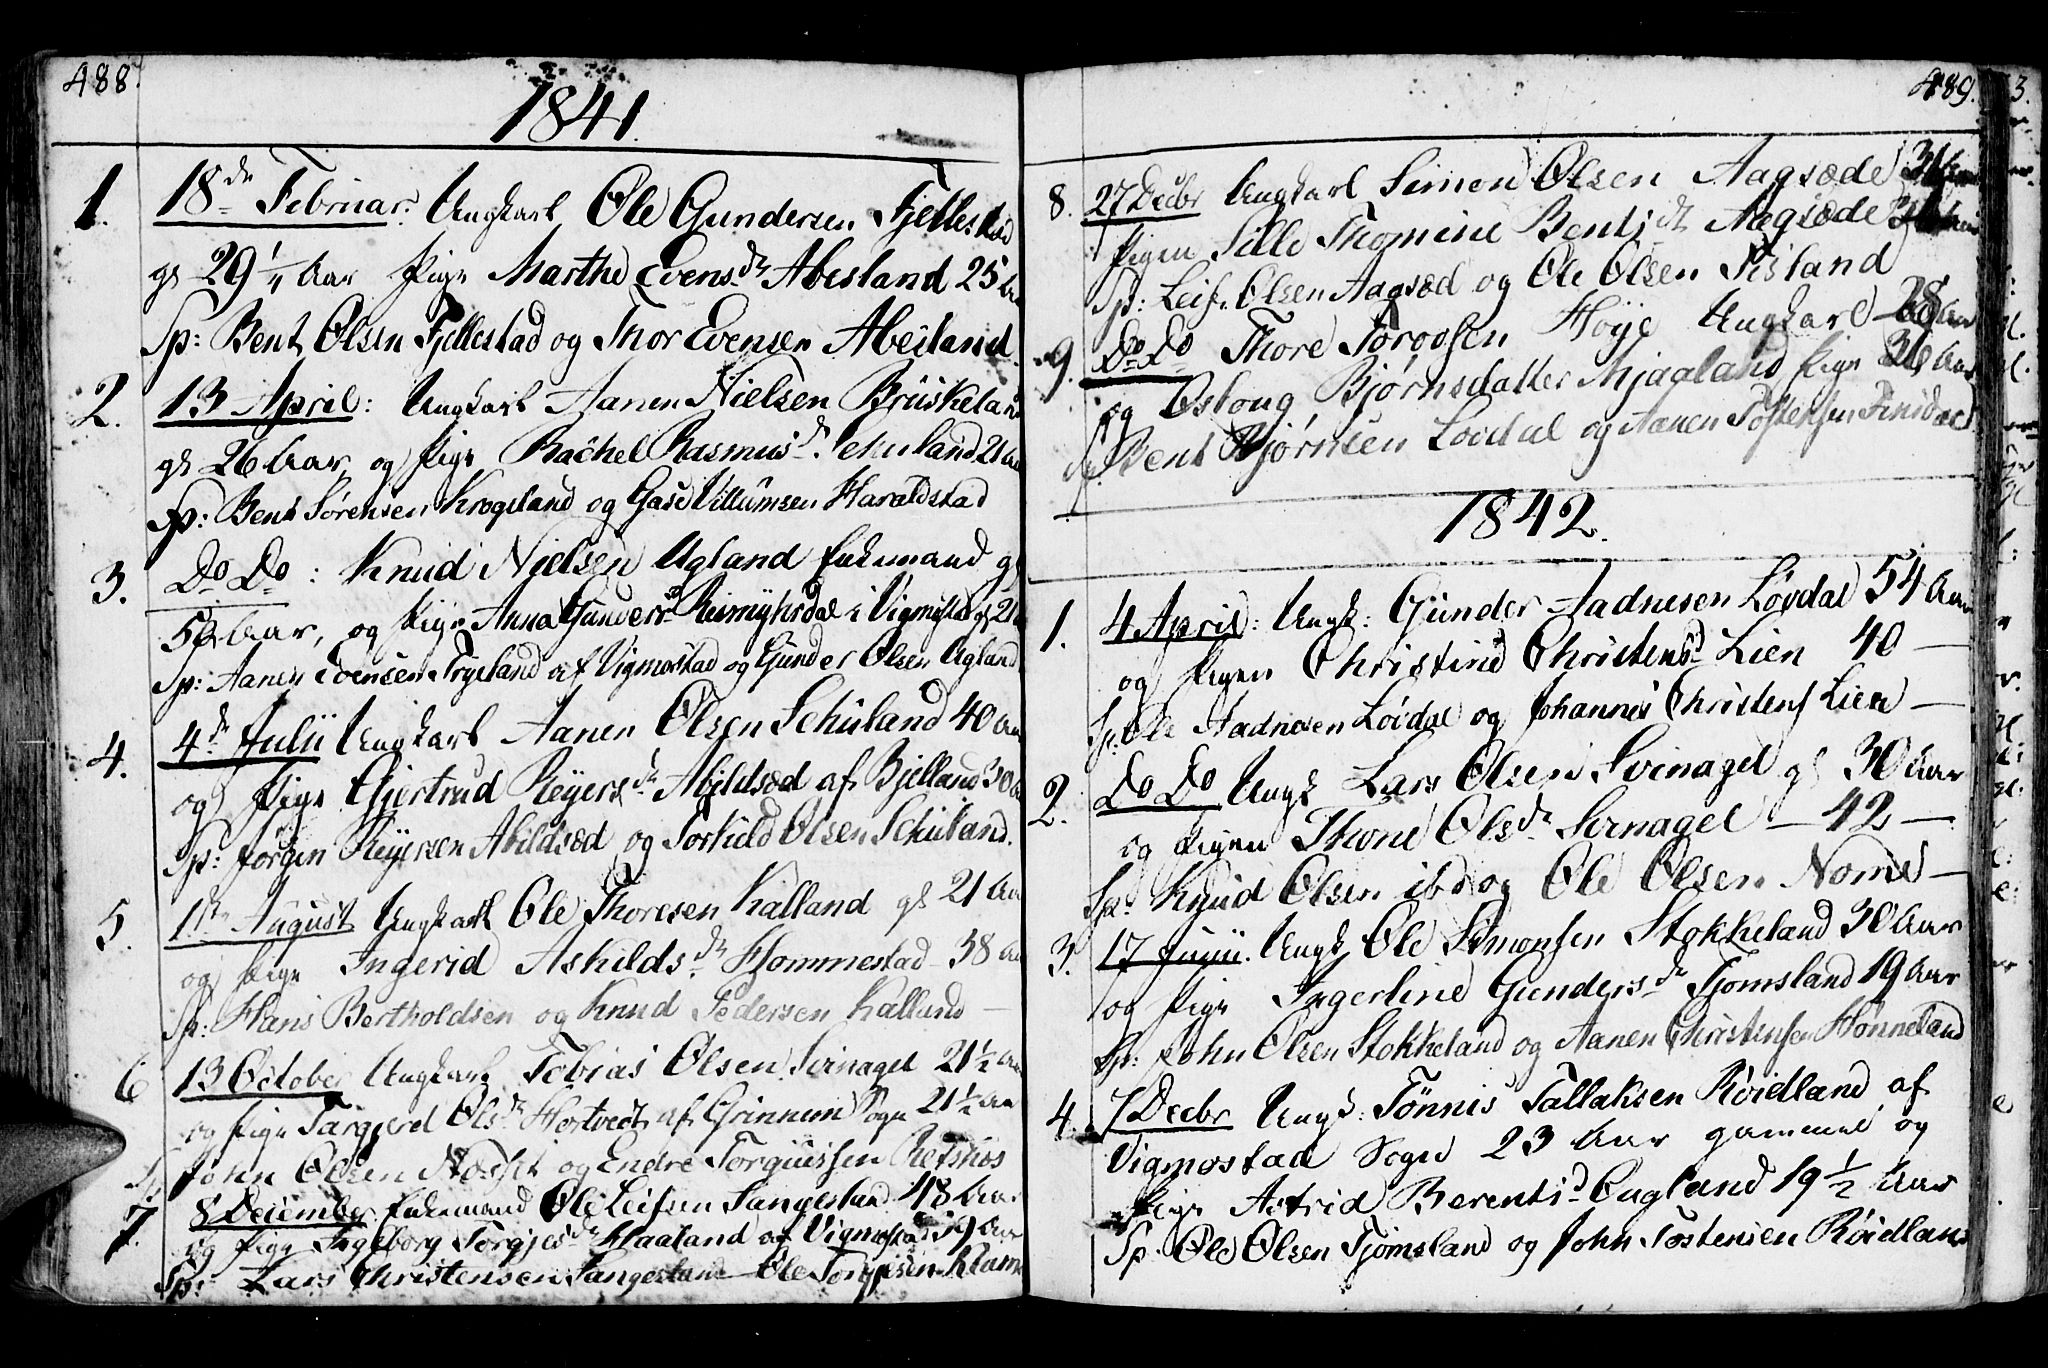 488.
1841.
1. 18de Februar. Ungkarl Ole Gundersen Fjellestad
gl 29 1/4 Aar Pige Marthe Evensdr Abesland 25 Aar
Sp: Bent Olsen Fjellestad og Thor Evensen Abesland
2. 13 April: Ungkarl Aanen Nielsen Bruskeland
gl 26 Aar, og Pige Rachel Rasmusd. Schuland 21 Aar
Sp: Bent Sørensen Krogeland og Gase Villumsen Haraldstad
3. Do Do: Knud Nielsen Ugland Enkemand gl
Aar, og Pige Anna Gundersd i Vigmostad gl 21
Sp: Aanen Evensen Trygland af Vigmostad og Gunder Olsen Ugland
4. 4de Julii Ungkarl Aanen Olsen Schuland 40 Aar
og Pige Gjertrud Reyersdr Abildsæd af Bjelland 30 Aar
Sp: Jørgen Reyersen Abildsæd og Torkild Olsen Schuland.
5. 1ste August Ungkarl Ole Thoresen Kalland gl 21 Aar
og Pige Ingerid Askildsdr Hommestad 38 Aar
Sp: Hans Bertholdsen og Knud Pedersen Kalland —
6 13 October Ungkarl Tobias Olsen Svinagel 21 1/2 Aar
og Pige Targjerd Olsdr Hortvedt af Grinnum Sogn 21 1/2 Aar
Sp John Olsen og Endre Torguussen Refsnes
7. 8 December Enkemand Ole Leifsen Sangesland 48 Aar
og Pige Ingeborg Torgjesdr Haaland af Vigmostad 39 Aar
Sp: Lars Christensen Sangesland Ole Torgjesen
489.
8. 27 Decbr Ungkarl Simon Olsen Aagsæde
Pigen Sille Thomine Bentsdr Aagsæde
Sp: Leif Olsen Aagsæd og Ole Olsen Fisland
9. Do Do Thore Torodsen Høye Ungkarl 28 Aar
og Osloug Bjørnsdatter Mjaaland Pige Aar
Sp Bent Bjørnsen Lovdal og Aanen Tostensen
1842.
1. 4 April: Ungk: Gunder Aadnesen Løvdal 54 Aar
og Pigen Christine Christensd Lien 40 —
Sp: Ole Aadnesen Løvdal og Johannes Christens Lien —
2. Do Do Ungk Lars Olsen Svinagel gl 30 Aar
og Pigen Thone Olsdr Svinagel — 42 —
Sp: Knud Olsen ibd og Ole Olsen Nome —
3. 17 Junii. Ungk Ole Simonsen Stokkeland 30 Aar
og Pige Ingerline Gundersdr Tjomsland 19 Aar
Sp: John Olsen Stokkeland og Aanen Christensen Hønneland
4. 7 Decbr Ungk: Tønnis Tallaksen Røidland af
Vigmostad Sogn 23 Aar gammel og
Pige Astrid Berentsd Øugland 19 1/2 Aar
Sp: Ole Olsen Tjomsland og John Tostensen Røidland